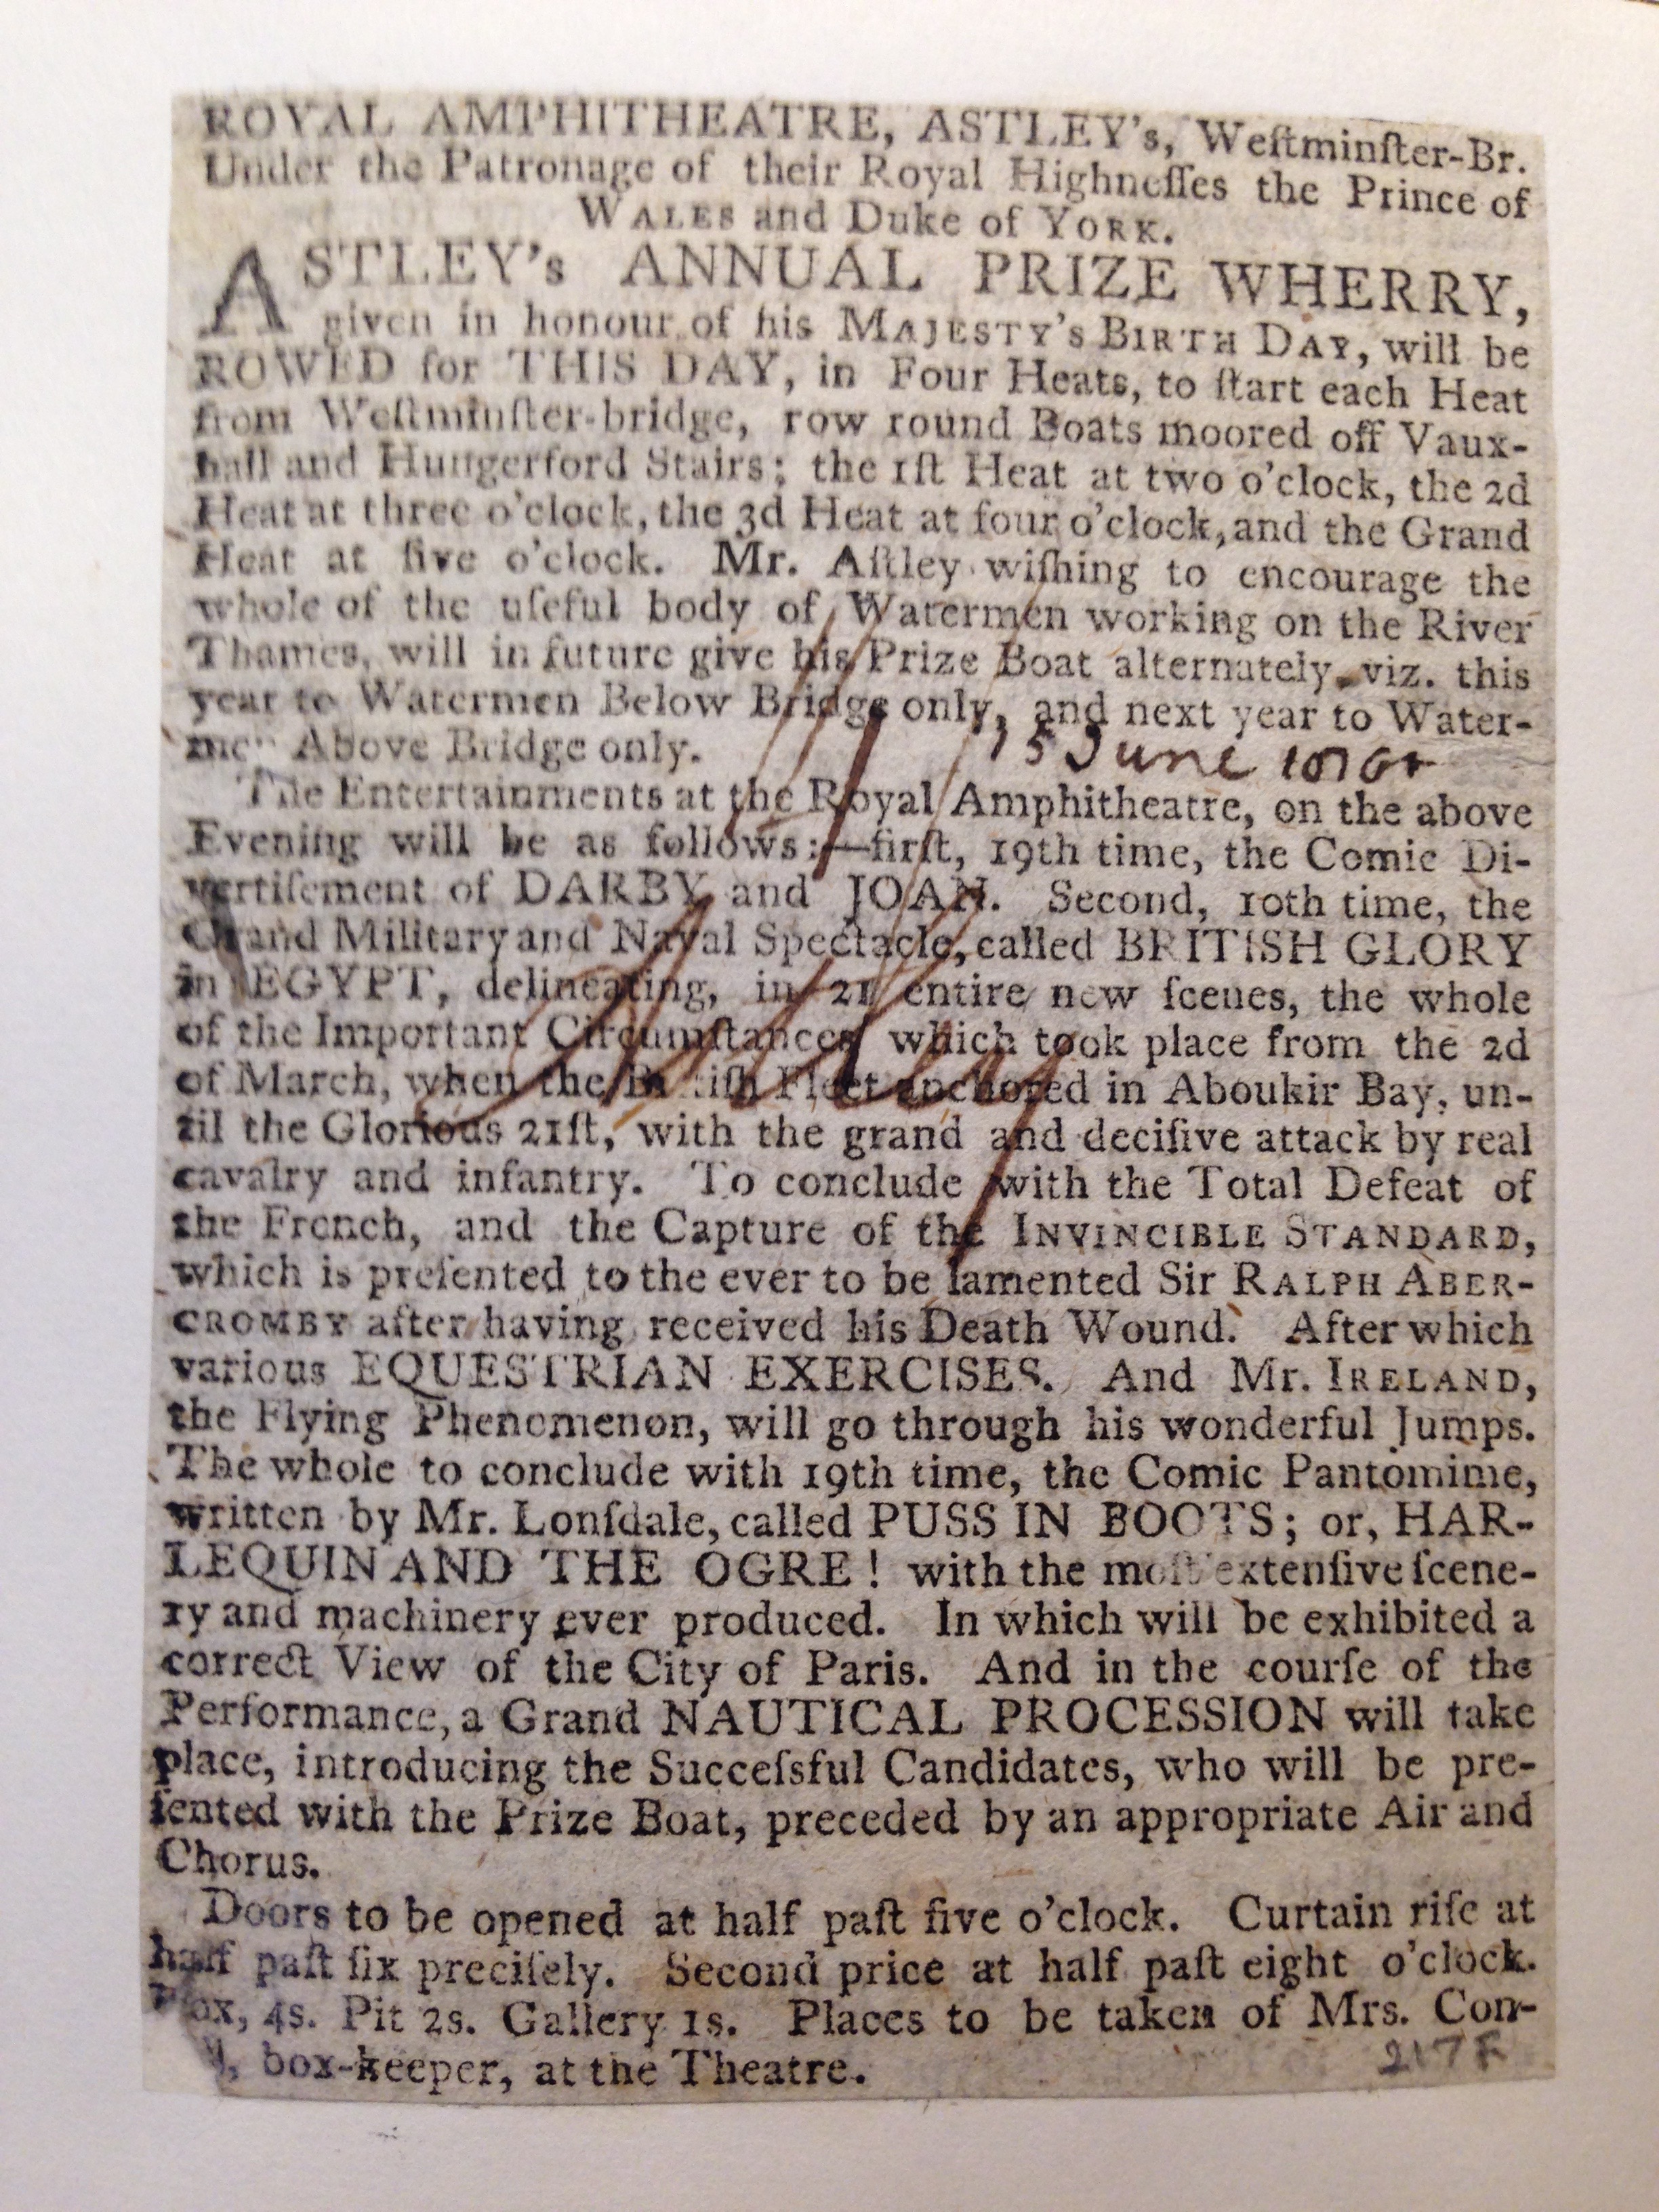 ROYAL AMPHITHEATRE, ASTLEY's, Weſtminſter-Br.
Under the Patronage of their Royal Highneſſes the Prince of
WALES and Duke of YORK.
ASTLEY's ANNUAL PRIZE WHERRY,
given in honour of his MAJESTY'S BIRTH DAY, will be
ROWED for THIS DAY, in Four Heats, to ſtart each Heat
from Weſtminſter-bridge, row round Boats moored off Vaux-
hall and Hungerford Stairs; the 1ſt Heat at two o'clock, the 2d
Heat at three o'clock, the 3d Heat at four o'clock, and the Grand
Heat at five o'clock. Mr. Aſtley wiſhing to encourage the
whole of the uſeful body of Watermen working on the River
Thames, will in future give his Prize Boat alternately, viz. this
year to Watermen Below Bridge only, and next year to Water-
men Above Bridge only.
15 June
The Entertainments at the Royal Amphitheatre, on the above
Evening will be as follows:—firſt, 19th time, the Comic Di-
vertiſement of DARBY and JOAN. Second, 10th time, the
Grand Military and Naval Spectacle, called BRITISH GLORY
in EGYPT, delineating, in 21 entire new ſcenes, the whole
of the Important Circumſtances which took place from the 2d
of March, when the Britiſh Fleet anchored in Aboukir Bay, un-
til the Glorious 21ſt, with the grand and deciſive attack by real
cavalry and infantry. To conclude with the Total Defeat of
the French, and the Capture of the INVINCIBLE STANDARD,
which is preſented to the ever to be lamented Sir RALPH ABER-
CROMBY after having received his Death Wound. After which
various EQUESTRIAN EXERCISES. And Mr. IRELAND,
the Flying Phenomenon, will go through his wonderful Jumps.
The whole to conclude with 19th time, the Comic Pantomime,
written by Mr. Lonſdale, called PUSS IN BOOTS; or, HAR-
LEQUIN AND THE OGRE! with the moſt extenſive ſcene-
ry and machinery ever produced. In which will be exhibited a
correct View of the City of Paris. And in the courſe of the
Performance, a Grand NAUTICAL PROCESSION will take
place, introducing the Succeſsful Candidates, who will be pre-
ſented with the Prize Boat, preceded by an appropriate Air and
Chorus.
Doors to be opened at half paſt five o'clock. Curtain riſe at
half paſt ſix preciſely. Second price at half paſt eight o'clock.
Box, 4s. Pit 2s. Gallery 1s. Places to be taken of Mrs. Con-
box-keeper, at the Theatre.
217F